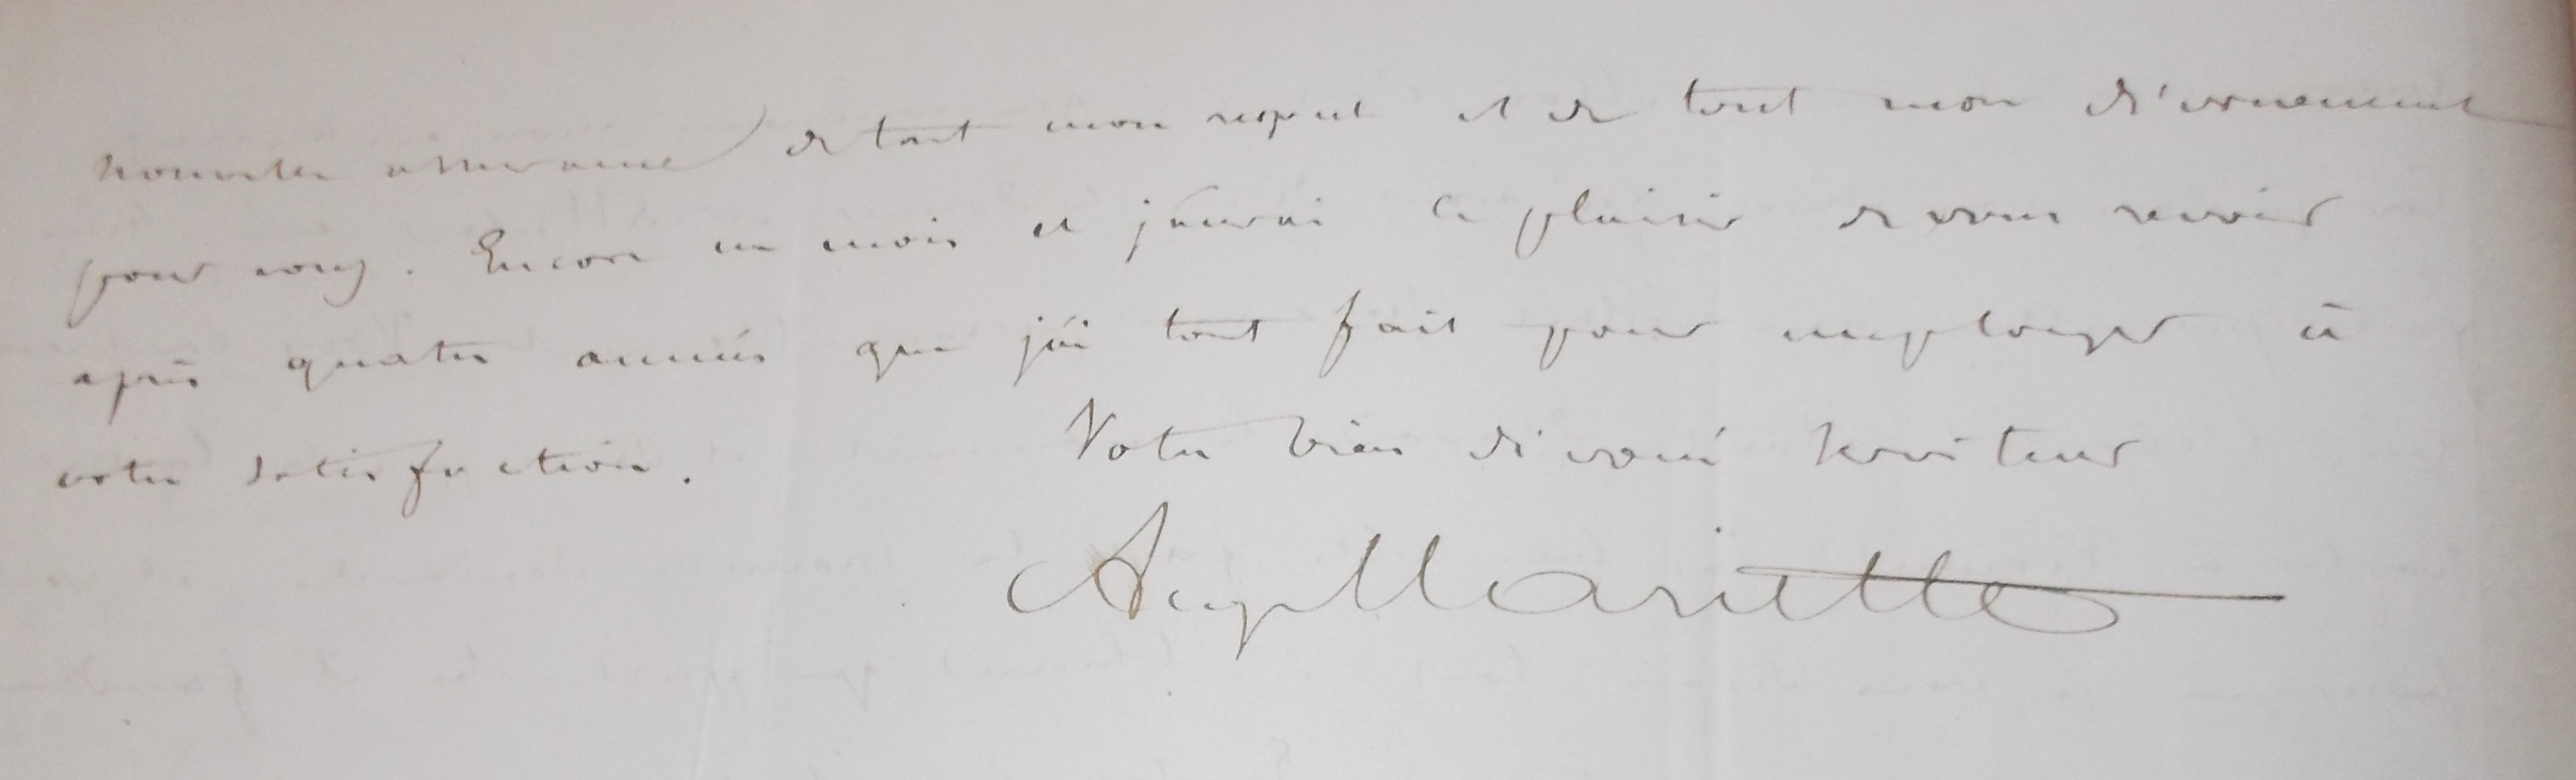 nouvelle assurance de tout mon respect et de tout mon dévouement
pour vous. Encore un mois et j'aurai le plaisir de vous revoir
après quatre années que j'ai tout fait pour employer à
votre satisfaction. Votre bien dévoué serviteur
Aug Mariette